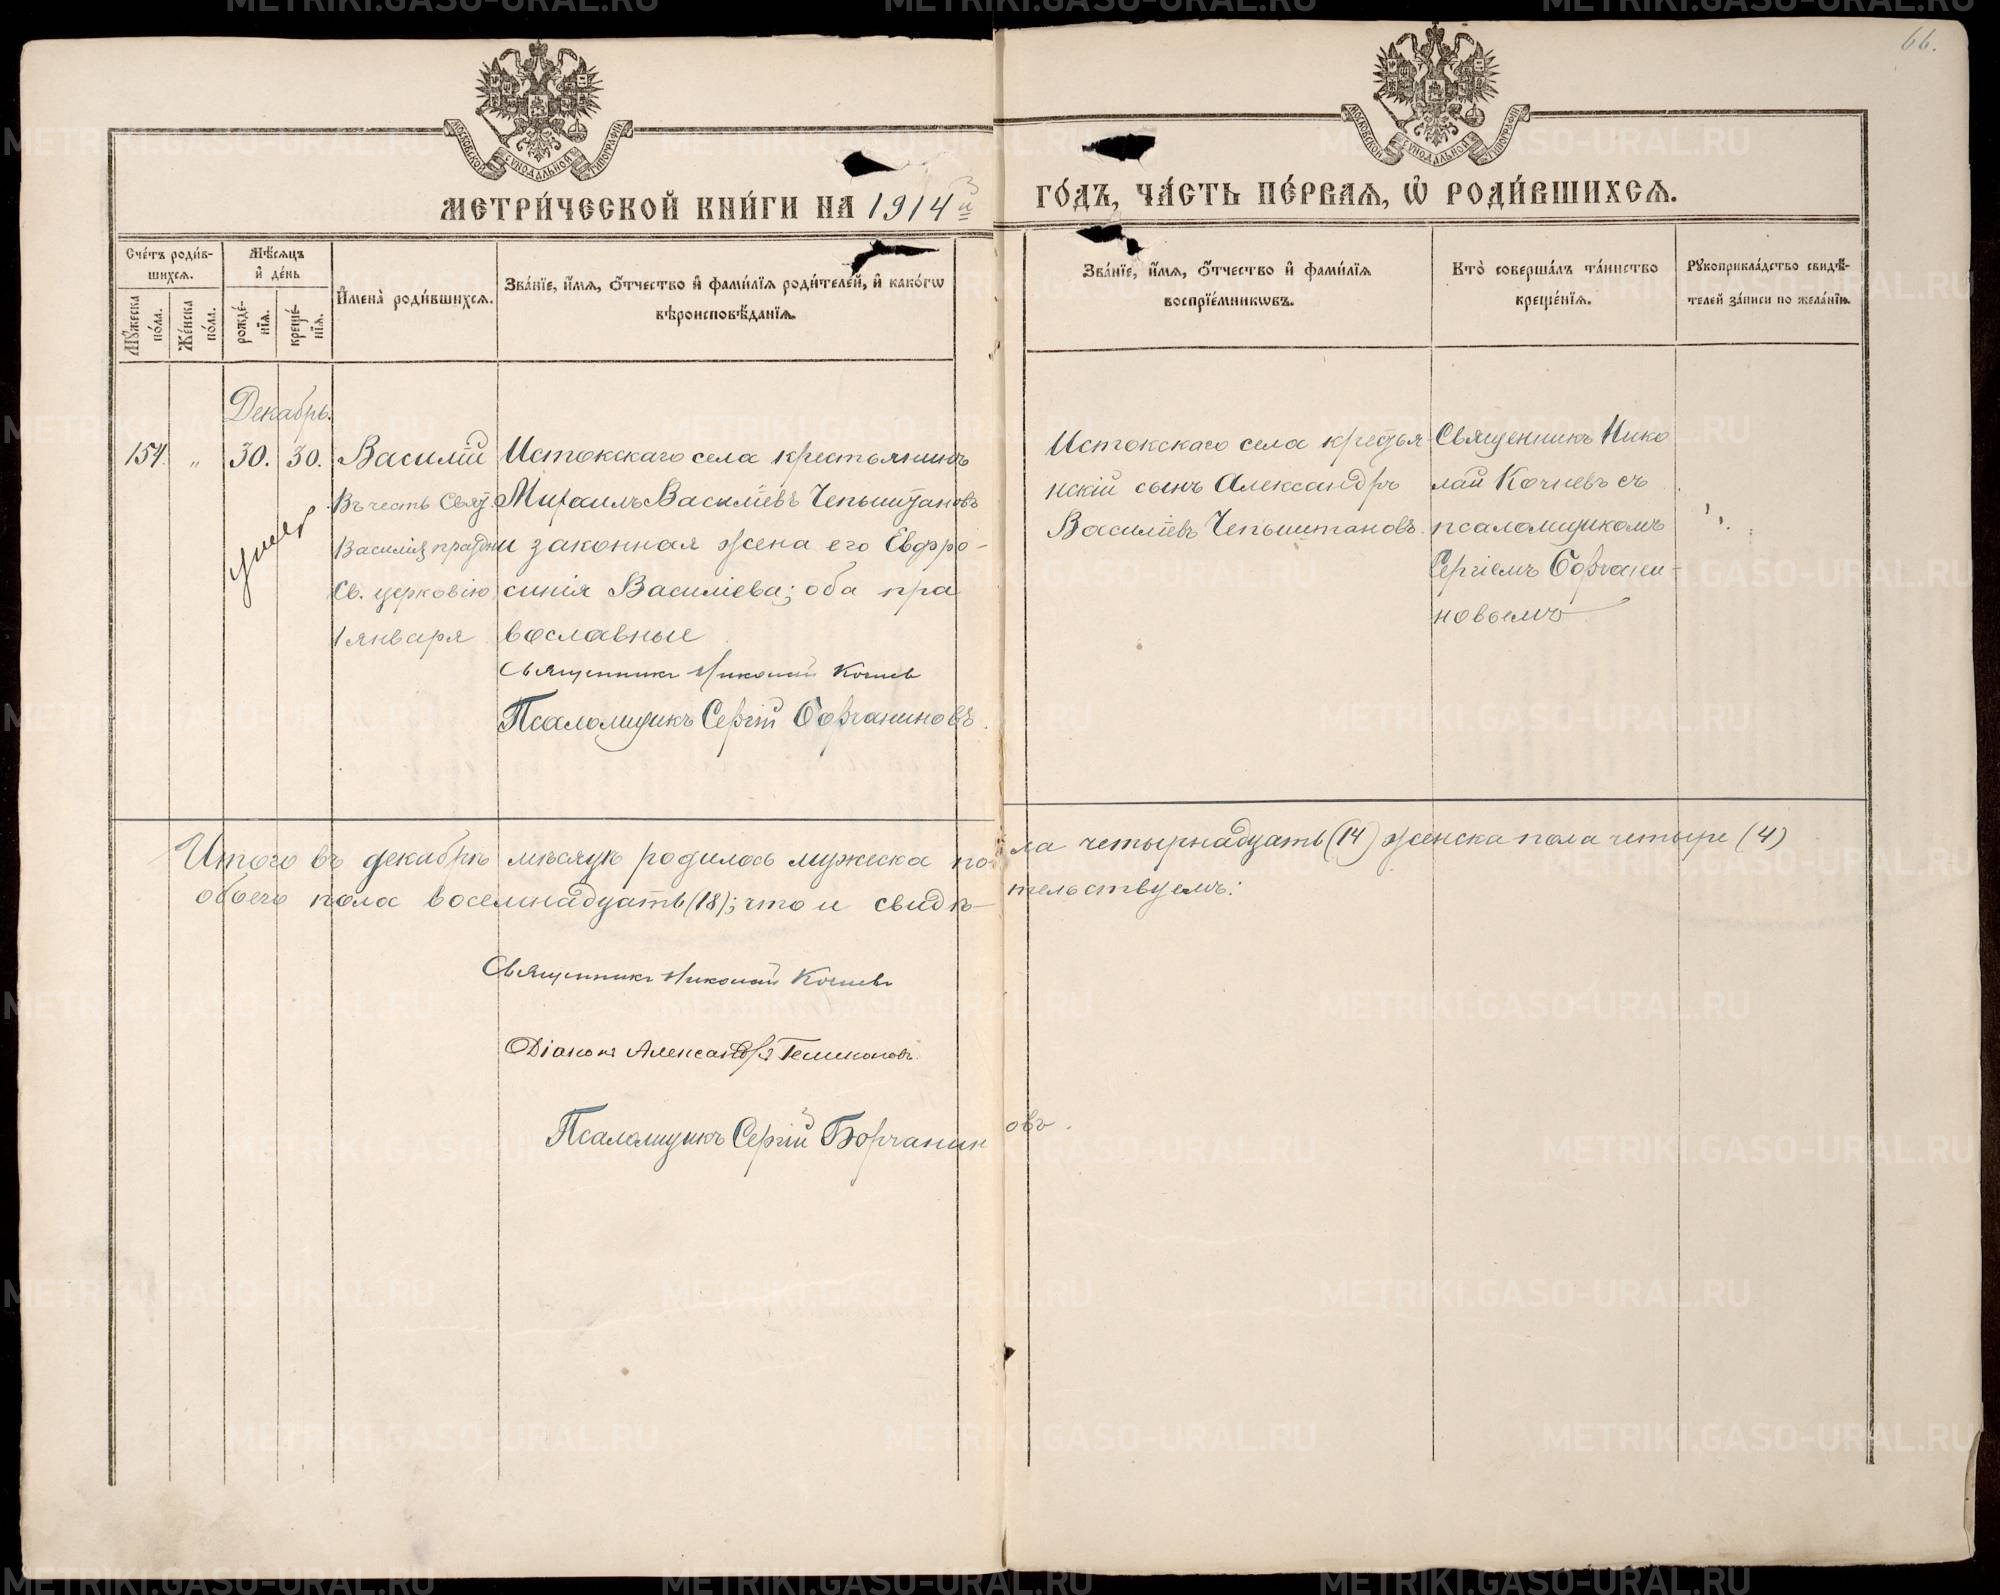 66.
МОСКОВСКОЙ СѴНОДАЛЬНОЙ ТИПОГРАФІИ
МОСКОВСКОЙ СѴНОДАЛЬНОЙ ТИПОГРАФІИ
МЕТРИ́ЧЕСКОЙ КНИ́ГИ НА 1914й ГО́ДЪ, ЧА́СТЬ ПЕ́РВАѦ, Ѡ҆ РОДИ́ВШИХСѦ.
Сче́тъ роди́в-
шихсѧ.
Мꙋжеска по́ла.
Же́нска по́ла.
Мѣ́сѧцъ
и҆ де́нь
рожде́-
нїѧ.
креще́-
нїѧ.
И҆мена̀ роди́вшихсѧ.
Зва́нїе, и҆́мѧ, ѻ҆́тчество и҆ фами́лїѧ роди́телей, и҆ како́гѡ
вѣроисповѣ́данїѧ.
Зва́нїе, и҆́мѧ, ѻ҆́тчество и҆ фами́лїѧ
воспрїе́мникѡвъ.
Кто̀ соверша́лъ та́инство
креще́нїѧ.
Рꙋкоприкла́дство свидѣ́-
телей за́писи по жела́нїю.
Декабрь.
154. „ 30. 30.
Василій
Въ честь Свят.
Василія праздн
Св. церковію
1 января
умер
Истокскаго села крестьянинъ
Михаилъ Василіевъ Чепыштановъ
и законная жена его Евфро-
синія Василіева; оба пра
вославные
Священникъ Николай Кочневъ
Псаломщикъ Сергій Борчаниновъ.
Истокскаго села крестья-
нскій сынъ Александръ
Василіевъ Чепыштановъ.
Священникъ Нико
лай Кочневъ съ
псаломщикомъ
Сергіемъ Борчани-
новымъ
Итого въ декабрѣ мѣсяцѣ родилось мужеска по-ла четырнадцать (14) женска пола четыре (4)
обоего пола восемнадцать (18); что и свидѣ-тельствуемъ:
Священникъ Николай Кочневъ
Діаконъ Александръ
Псаломщикъ Сергій Борчаниновъ.
METRIKI.GASO-URAL.RU